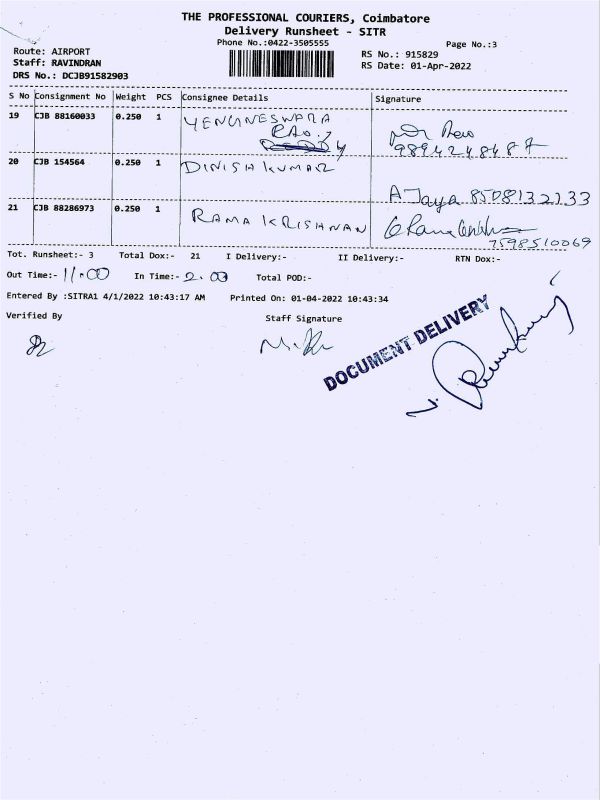 THE PROFESSIONAL COURIERS, Coimbatore
Delivery Runsheet - SITR
Phone No.:0422-3505555
Page No.:3
Route: AIRPORT
Staff: RAVINDRAN
DRS No.: DCJB91582903
RS No.: 915829
RS Date: 01-Apr-2022
S No Consignment No Weight PCS Consignee Details Signature
19 CJB 88160033 0.250 1 YENGNESWARA
RAO.
REDDY
9894248487
20 CJB 154564 0.250 1 DINISH KUMAR
A Jaya 8508132233
21 CJB 88286973 0.250 1 RAMA KRISHNAN
7598510069
Tot. Runsheet:- 3 Total Dox:- 21 I Delivery:- II Delivery:- RTN Dox:-
Out Time:- 11.00 In Time:- 2.00 Total POD:-
Entered By :SITRA1 4/1/2022 10:43:17 AM Printed On: 01-04-2022 10:43:34
Verified By Staff Signature
DOCUMENT DELIVERY